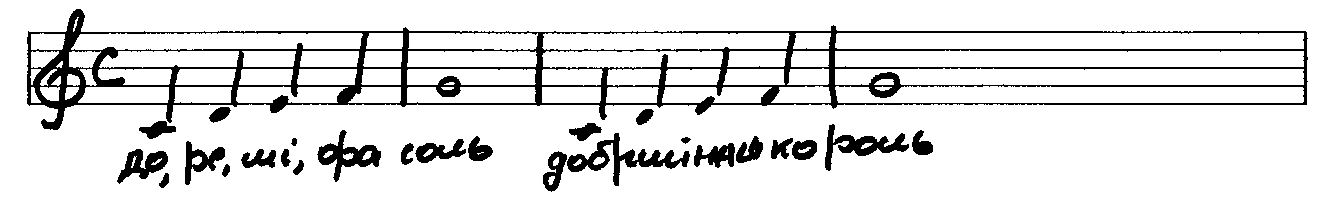 до, ре, мі, фа соль добрий наш король